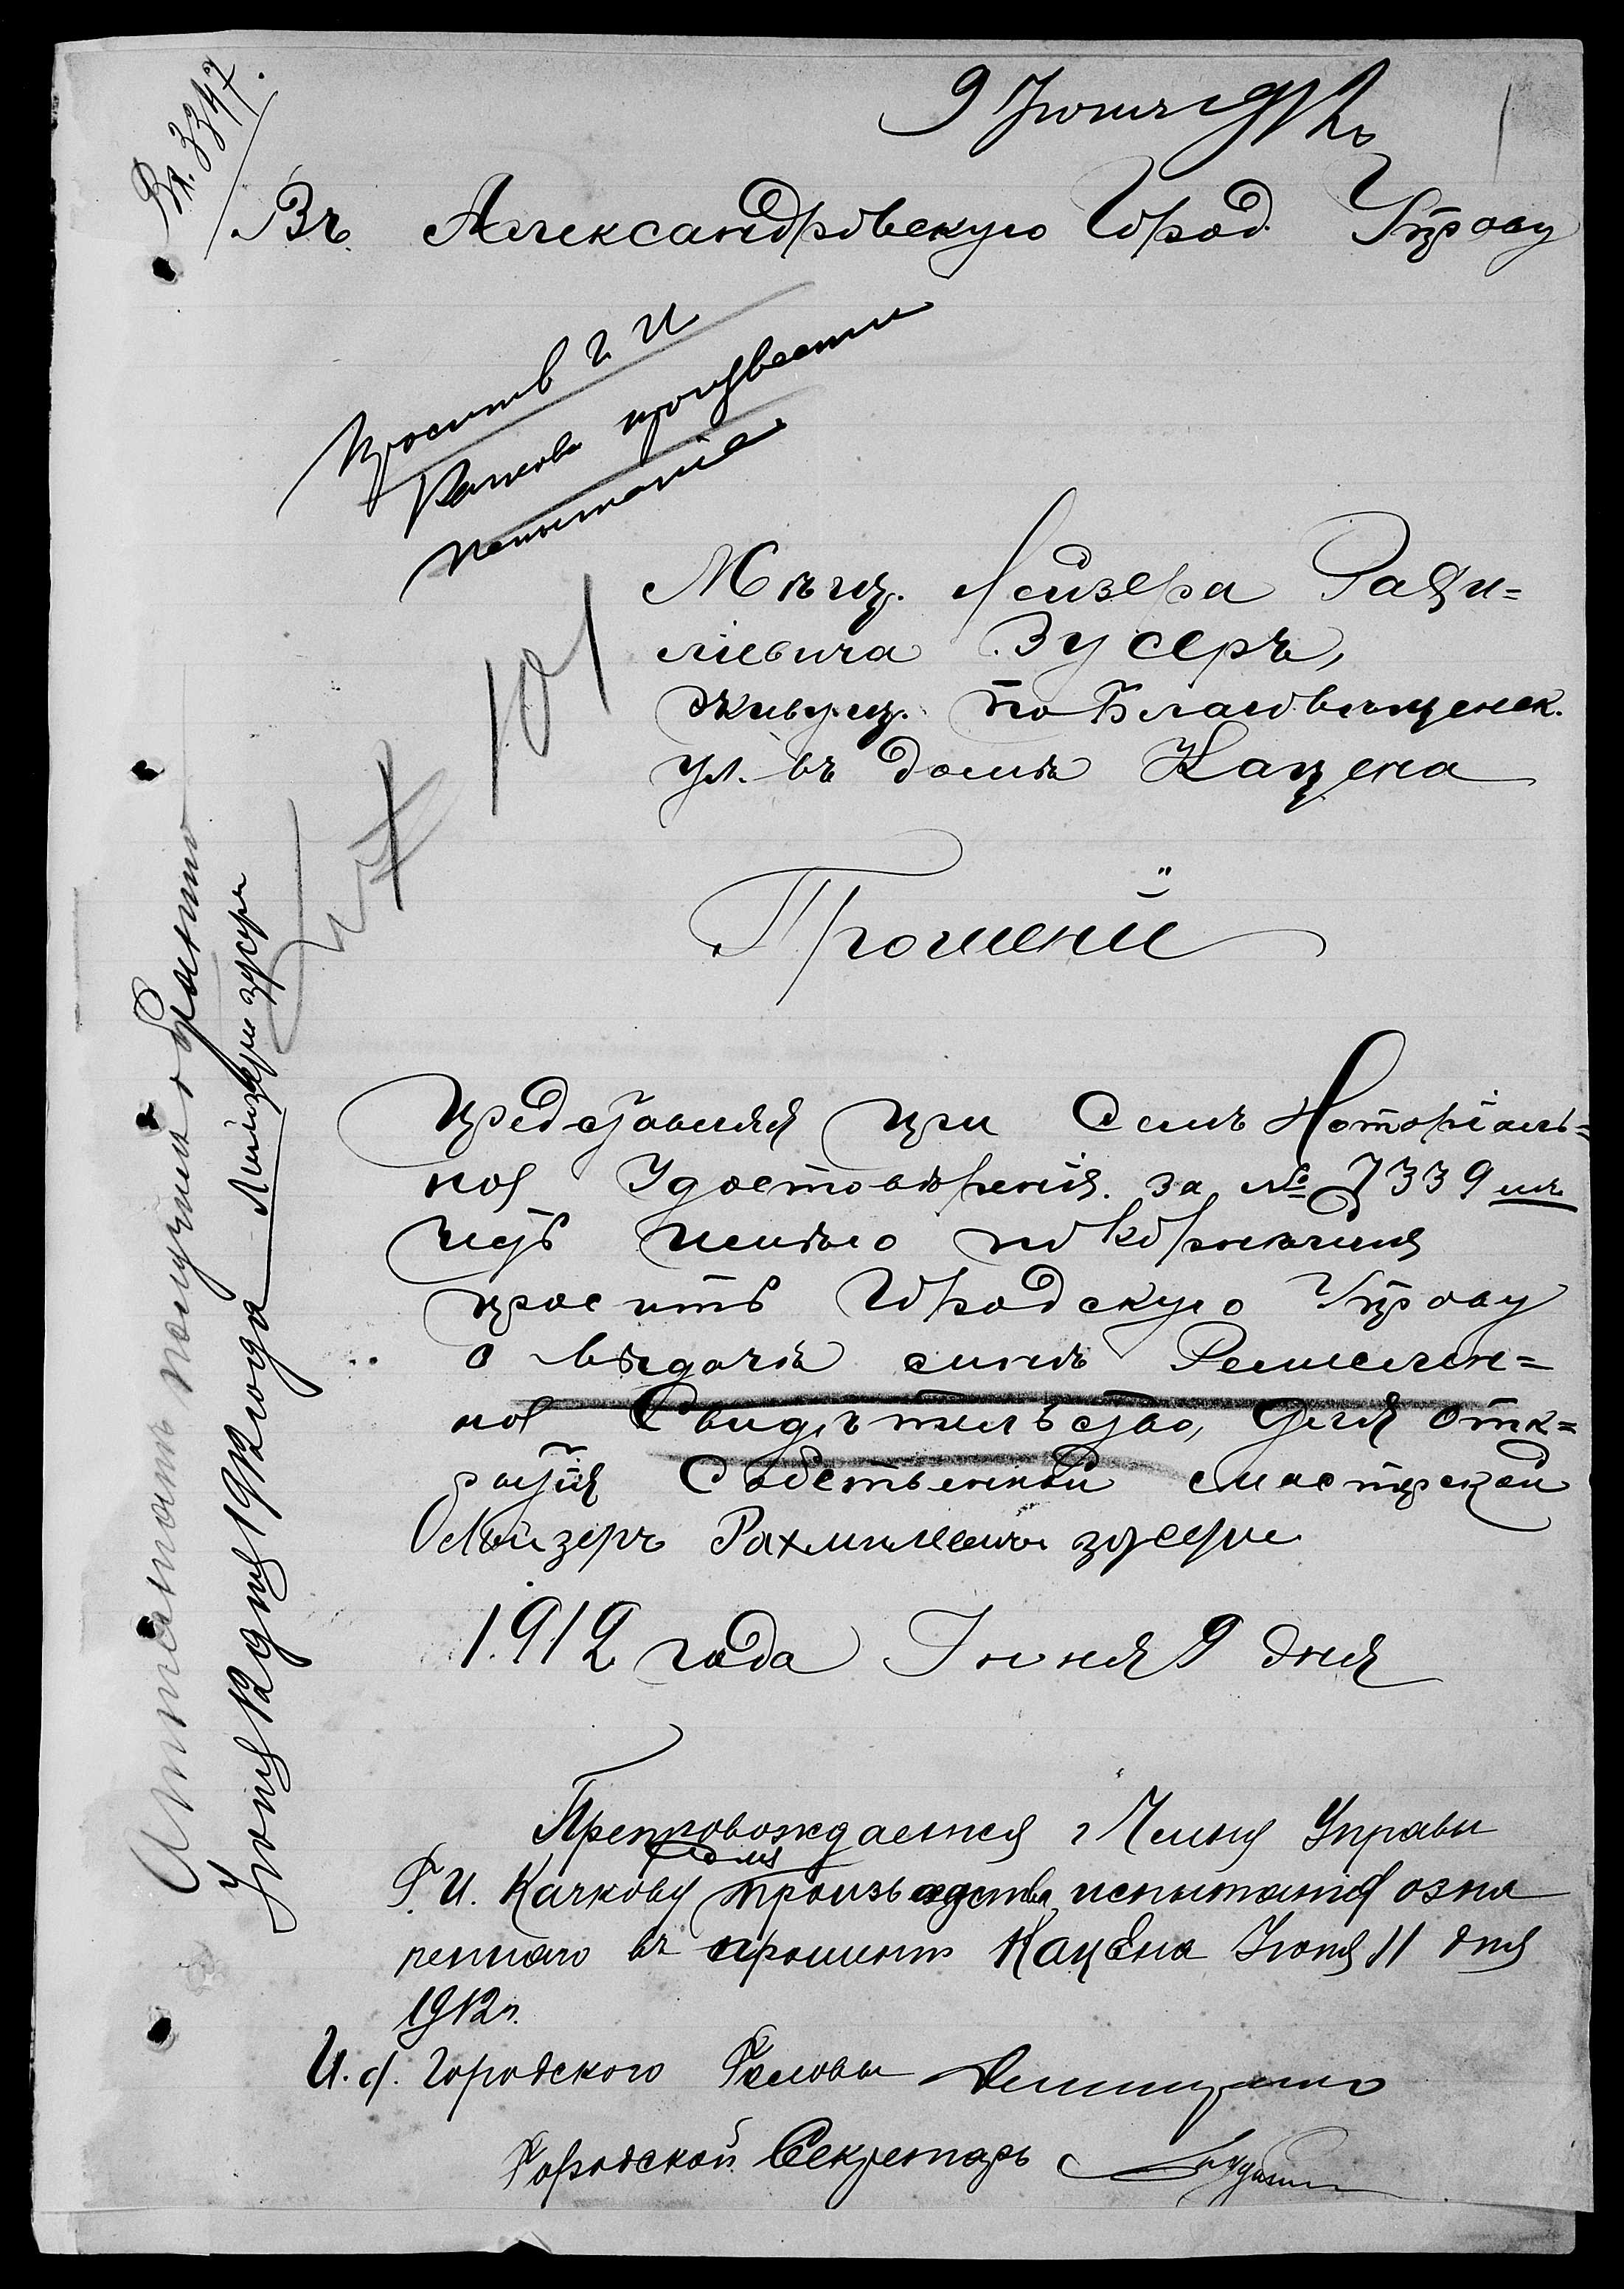 Вх. 3347.
9 Июня 1912 г.
1
Въ Александровскую Город. Управу
просить Г. И.
Качкова произвести
испытаніе
101
Мѣщ. Лейзера Рахми=
ліевича Зусеръ,
живущ. по Благовѣщенск.
ул. въ домѣ Кацена
Прошеніе
Представляя при семъ Нотаріаль=
ное Удостовѣреніе за № 7339 имѣ
честь покорнейше
просить Городскую Управу
о выдачѣ мнѣ Ремеслен=
ное Свидѣтельство, для отк=
рытія Собственной мастерской
Лейзеръ Рахмилевичъ Зусеръ
1912 года Іюня 9 дня
Препровождается г Члену Управы
Г. И. Качкову для производства испытанія озна
ченнаго въ прошеніи Кацена Іюня 11 дня
1912 г.
И. д. Городского Головы
Городской Секретарь
Аттестатъ получилъ обратно
Іюня 12 дня 1912 года Лейзеръ Зусеръ